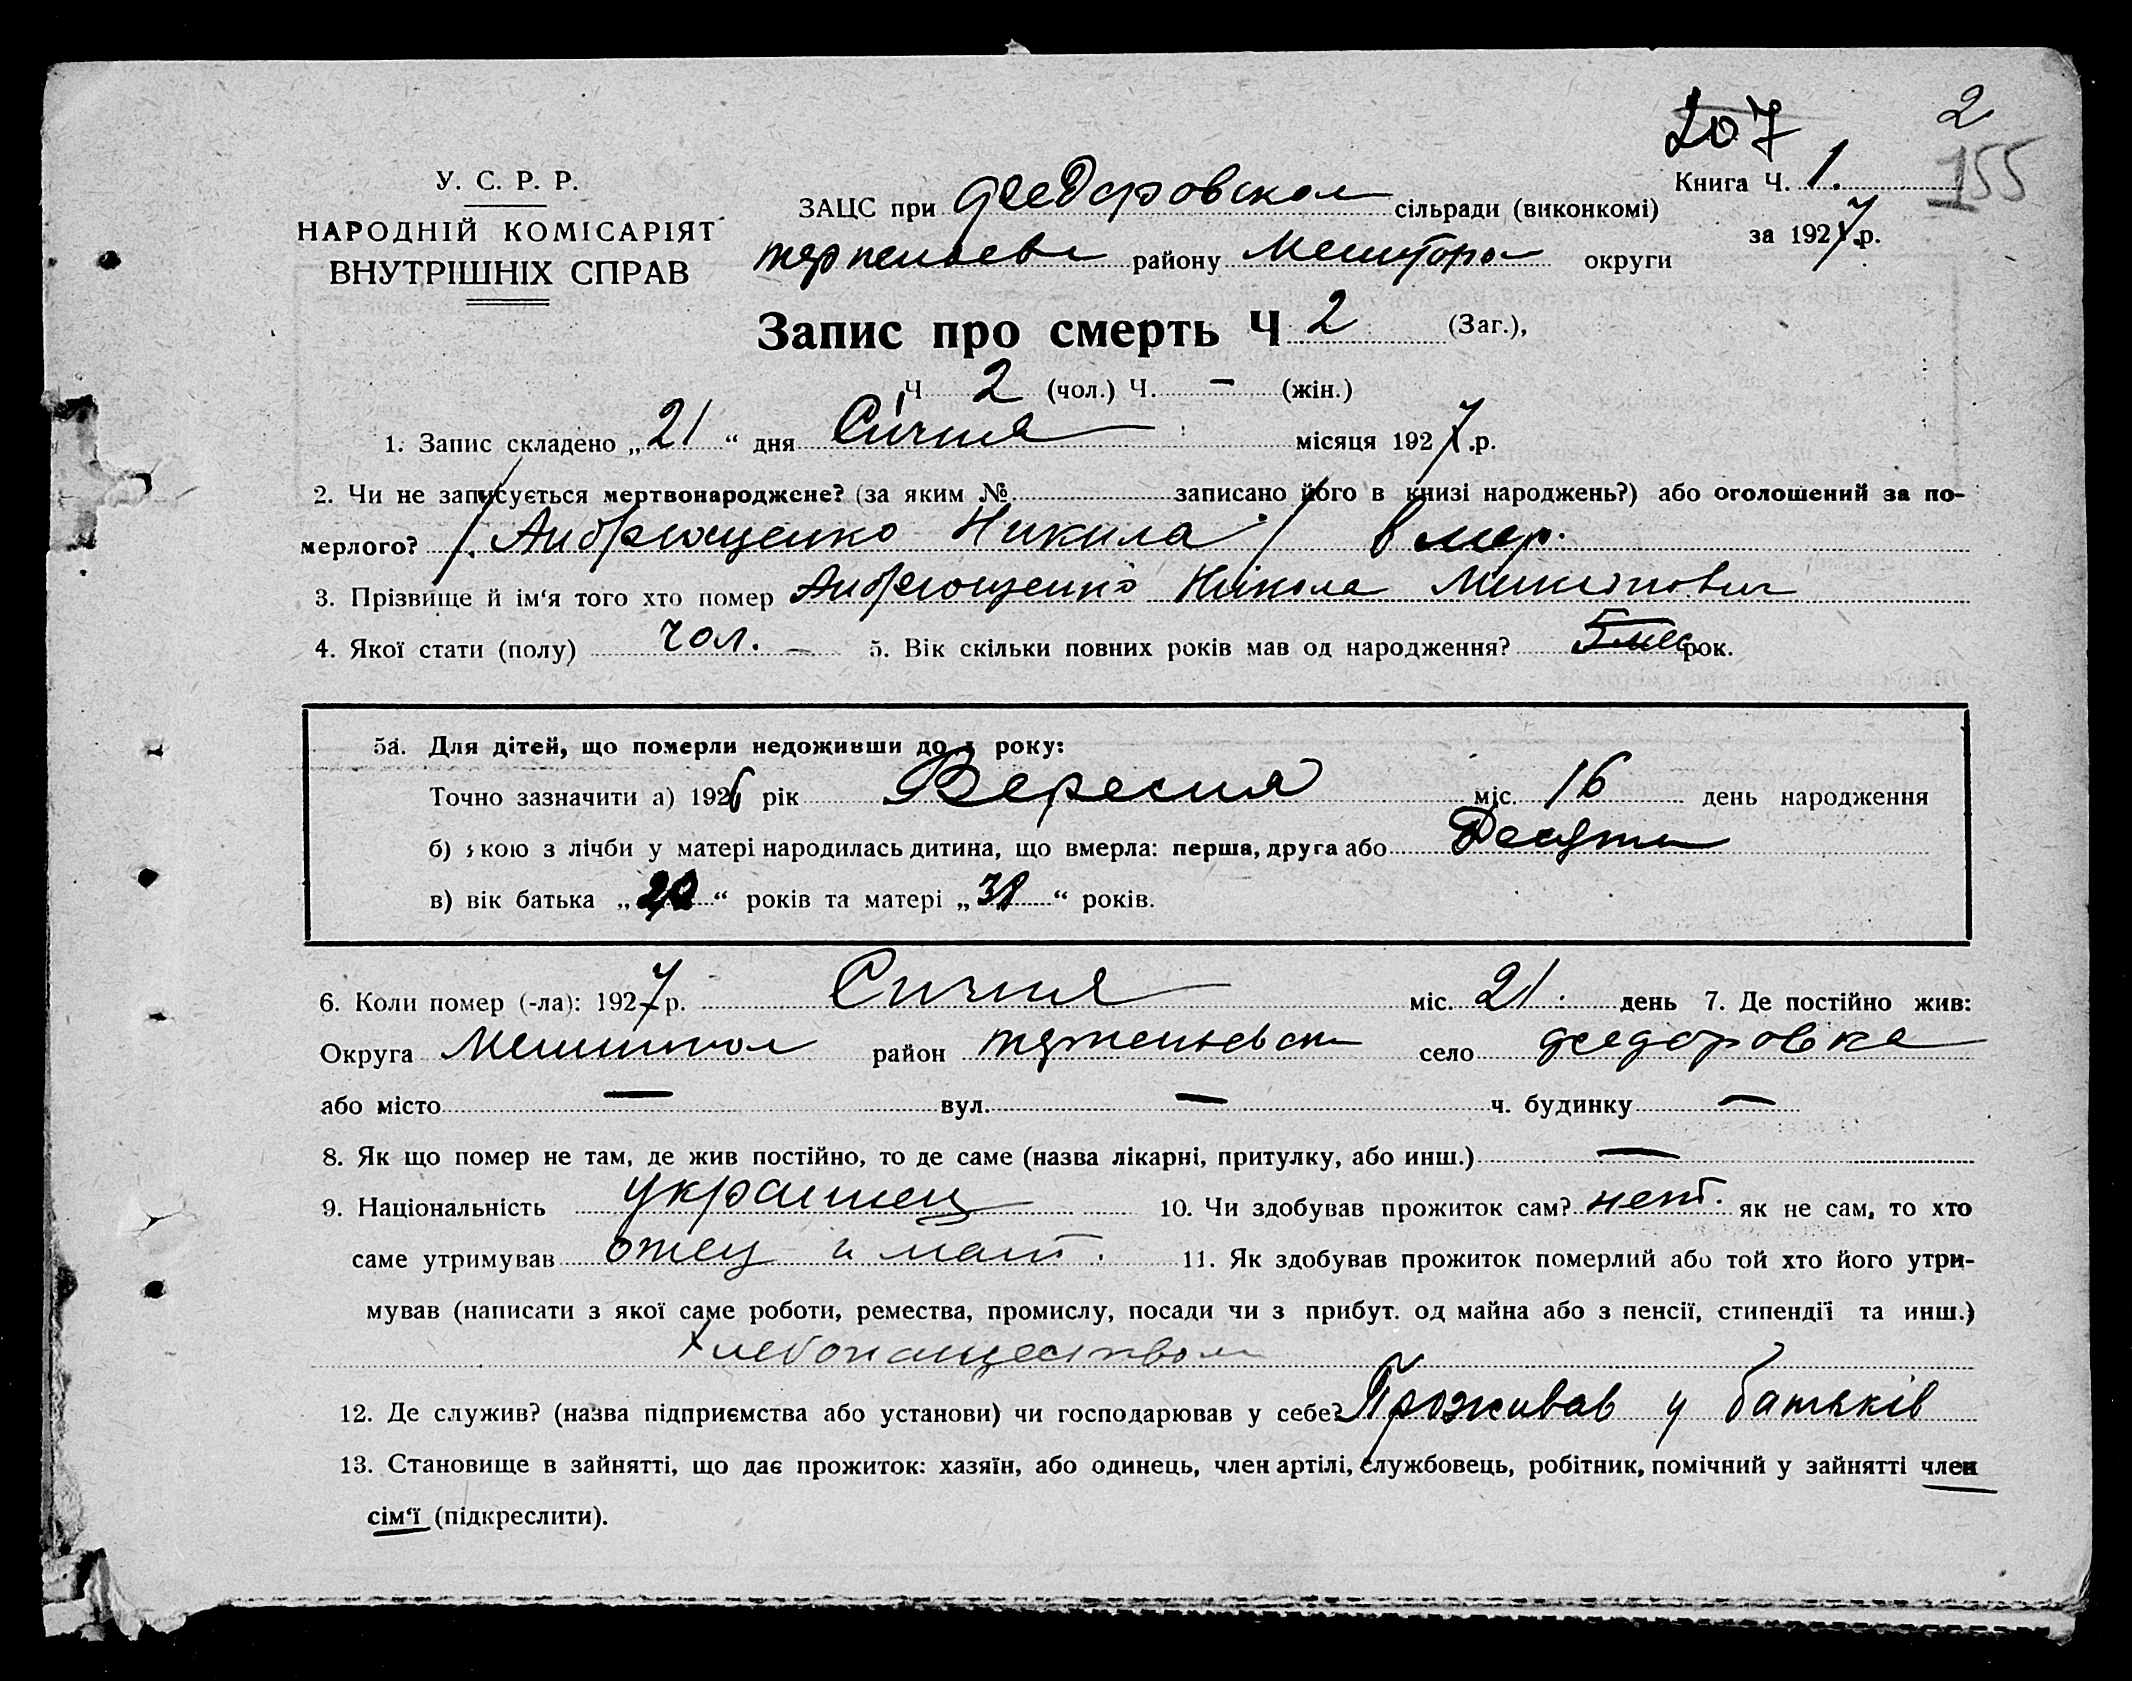 207 2
У. С. Р. Р. ЗАЦС при Феодоровском сільради (виконкомі) Книга Ч. 1. 155
НАРОДНІЙ КОМІСАРІЯТ за 1927 р.
ВНУТРІШНІХ СПРАВ району округи
Запис про смерть Ч 2 (Заг.),
Ч 2 (чол.) Ч. — (жін.)
1. Запис складено „21“ дня Січня місяця 1927 .р.
2. Чи не записується мертвонароджене? (за яким № записано його в книзі народжень?) або оголошений за по-
мерлого? Андрющенко Никила вмер.
3. Прізвище й ім'я того хто помер Андрющенко Нікола
4. Якої стати (полу) чол. — 5. Вік скільки повних років мав од народження? 5 мес рок.
5а. Для дітей, що померли недоживши до 1 року:
Точно зазначити а) 1926 рік Вересня міс. 16 день народження
б) якою з лічби у матері народилась дитина, що вмерла: перша, друга або
в) вік батька „ “ років та матері „38“ років.
6. Коли помер (-ла): 1927 р. Сичня міс. 21. день 7. Де постійно жив:
Округа район село Феодоровка
або місто — вул. — ч. будинку —
8. Як що помер не там, де жив постійно, то де саме (назва лікарні, притулку, або инш.) —
9. Національність украинец 10. Чи здобував прожиток сам? нет. як не сам, то хто
саме утримував отец и мат. 11. Як здобував прожиток померлий або той хто його утри-
мував (написати з якої саме роботи, ремества, промислу, посади чи з прибут. од майна або з пенсії, стипендії та инш.)
хлебопашеством
12. Де служив? (назва підприємства або установи) чи господарював у себе? Проживав у батьків
13. Становище в зайнятті, що дає прожиток: хазяїн, або одинець, член артілі, службовець, робітник, помічний у зайнятті член
сім'ї (підкреслити).